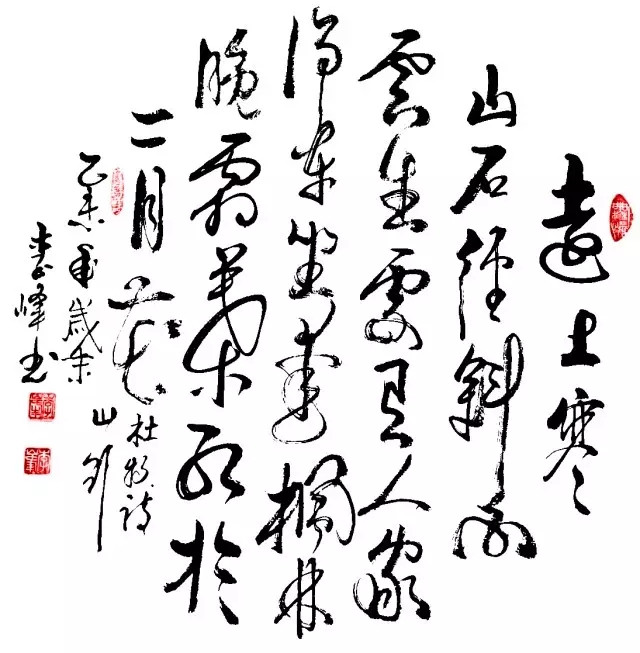 遠上寒
山石徑斜白
雲生處有人家
停車坐愛楓林
晚霜葉紅於
二月花
杜牧诗
山行
乙未年歲末
李峰书